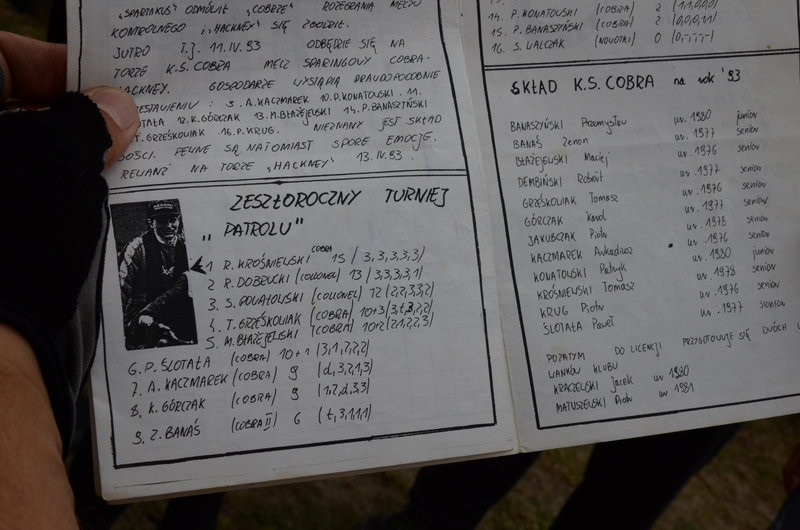 „SPARTAKUS" ODMÓWIŁ „COBRZE" ROZEGRANIA MECZU
KONTROLNEGO, „HACKNEY" SIĘ ZGODZIŁ.
JUTRO T.J. 11.IV.93 ODBĘDZIE SIĘ NA
TORZE K.S. COBRA MECZ SPARINGOWY COBRA-
HACKNEY. GOSPODARZE WYSTĄPIĄ PRAWDOPODOBNIE
ZESTAWIENIU: 9. A. KACZMAREK 10. P. KONATOWSKI 11.
SŁOTAŁA 12. K. GÓRCZAK 13. M. BŁAŻEJEWSKI 14. P. BANASZYŃSKI
T. GRZEŚKOWIAK 16. P. KRUG. NIEZNANY JEST SKŁAD
GOŚCI. PEWNE SĄ NATOMIAST SPORE EMOCJE.
REWANŻ NA TORZE „HACKNEY" 13.IV.93.
ZESZŁOROCZNY TURNIEJ
„PATROLU"
1 R. KROŚNIEWSKI COBRA 15 / 3,3,3,3,3/
2 R. DOBRUCKI (COLLONEL) 13 / 3,3,3,3,1)
3. S. POWATOWSKI (COLLONEL) 12 (2,2,3,3,2)
4. T. GRZEŚKOWIAK (COBRA) 10+3 (3,t,3,2,2)
5. M. BŁAŻEJEWSKI (COBRA) 10+2 (2,1,2,2,3)
6. P. SŁOTAŁA (COBRA) 10+1 (3,1,2,2,2)
7. A. KACZMAREK (COBRA) 9 (d,3,2,1,3)
8. K. GÓRCZAK (COBRA) 9 (1,2,d,3,3)
9. Z. BANAŚ (COBRA II) 6 (t,3,1,1,1)
14. P. KONATOWSKI (COBRA) 2 (1,1,0,0,0)
15. P. BANASZYŃSKI (COBRA) 2 (0,0,0,1,1)
16. S. WALCZAK (NOWOTKI) 0 (0,-,-,-,-)
SKŁAD K.S. COBRA na rok '93
BANASZYŃSKI Przemysław ur. 1980 junior
BANAŚ Zenon ur. 1977 senior
BŁAŻEJEWSKI Maciej ur. 1976 senior
DEMBIŃSKI Robert ur. 1977 senior
GRZEŚKOWIAK Tomasz ur. 1976 senior
GÓRCZAK Karol ur. 1977 senior
JAKUBCZAK Piotr ur. 1978 senior
KACZMAREK Arkadiusz ur. 1976 senior
KONATOWSKI Patryk ur. 1980 junior
KROŚNIEWSKI Tomasz ur. 1978 senior
KRUG Piotr ur. 1976 senior
SŁOTAŁA Paweł ur. 1977 senior
POZATYM DO LICENCJI PRZYGOTOWUJE SIĘ DWÓCH
WANKÓW KLUBU
KRACZELSKI Jacek ur 1980
MATUSZELSKI Piotr ur 1981